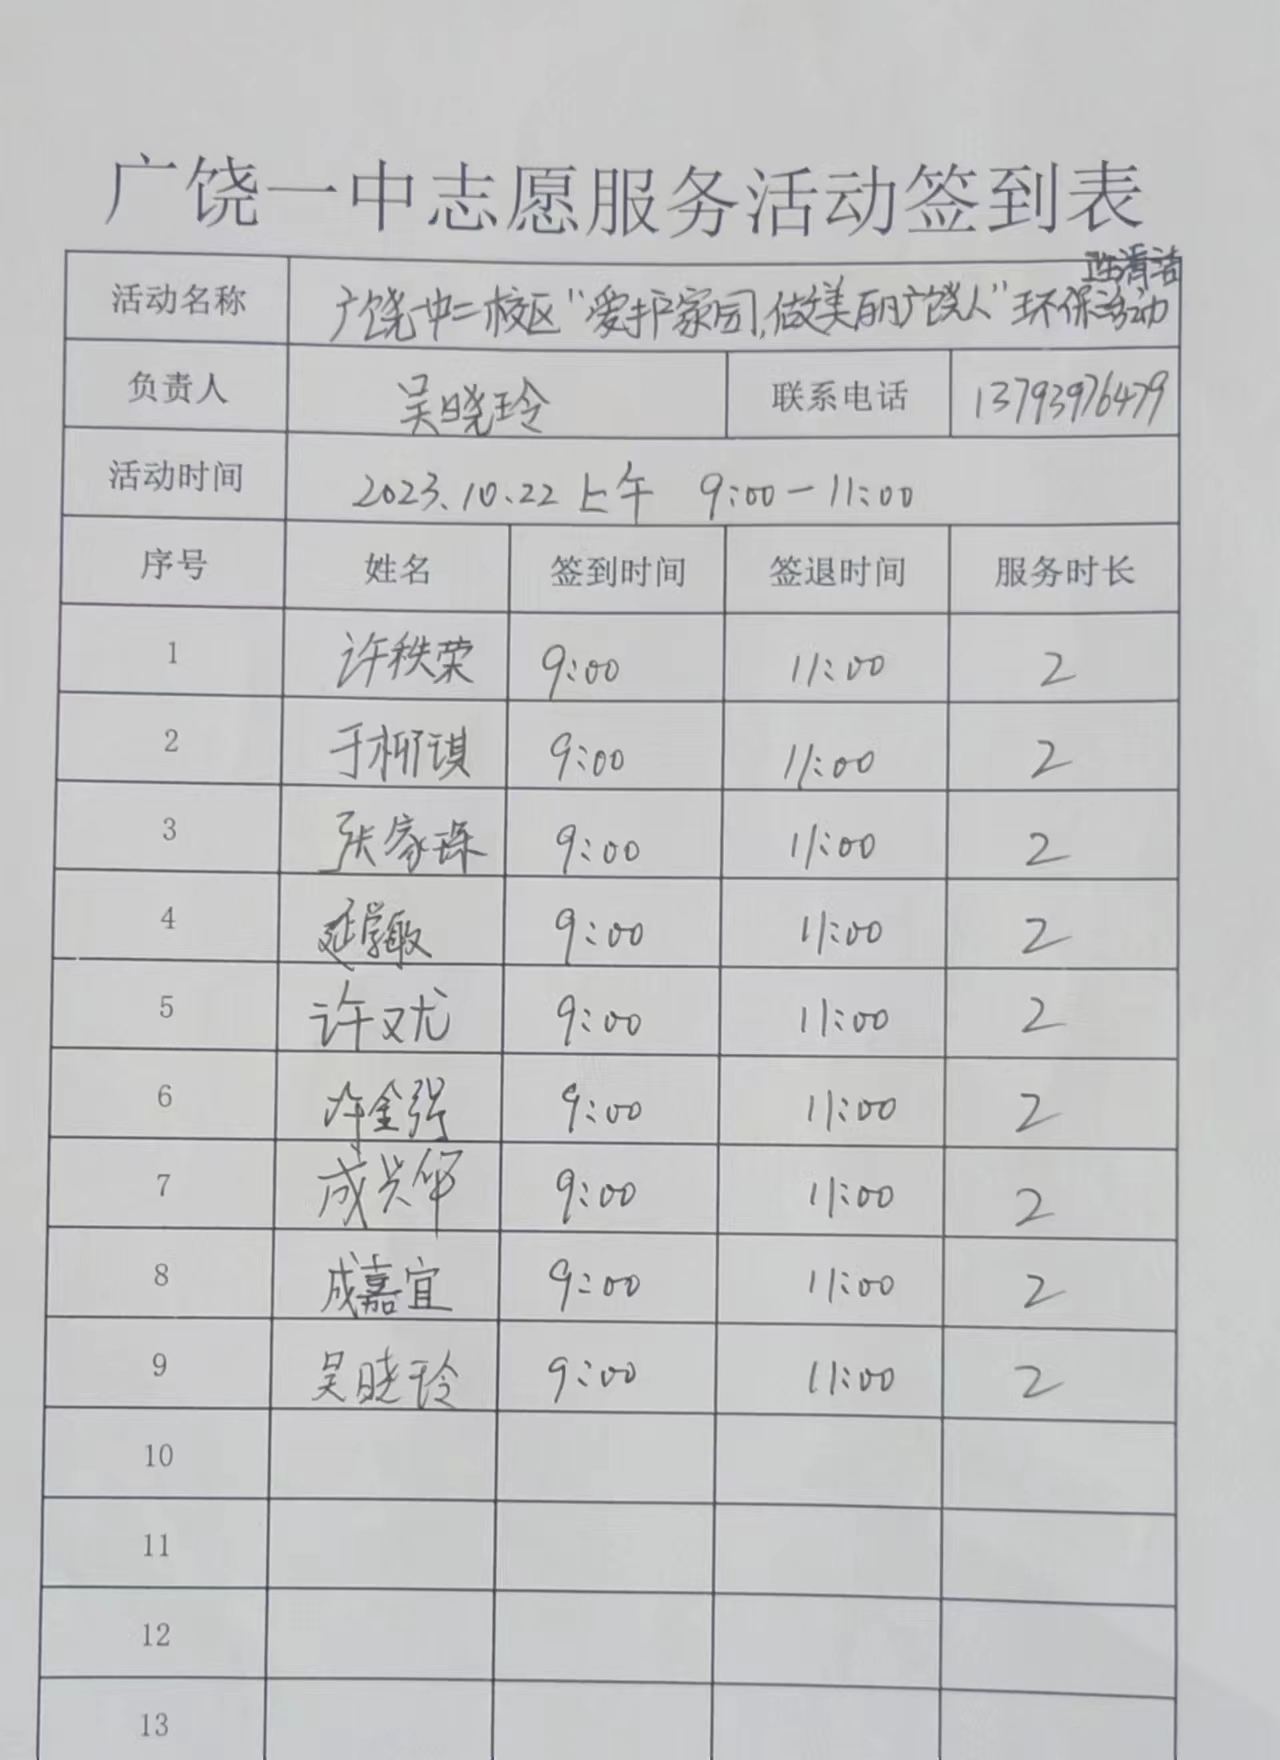 广饶一中志愿服务活动签到表
卫生清洁
活动名称 广饶一中二校区“爱护家园,做美丽广饶人”环保活动
负责人 吴晓玲 联系电话 13793976479
活动时间 2023.10.22 上午 9:00-11:00
序号 姓名 签到时间 签退时间 服务时长
1 许秩荣 9:00 11:00 2
2 于柳琪 9:00 11:00 2
3 张家琛 9:00 11:00 2
4 延学敏 9:00 11:00 2
5 许又尤 9:00 11:00 2
6 许金强 9:00 11:00 2
7 成兴华 9:00 11:00 2
8 成嘉宜 9:00 11:00 2
9 吴晓玲 9:00 11:00 2
10
11
12
13